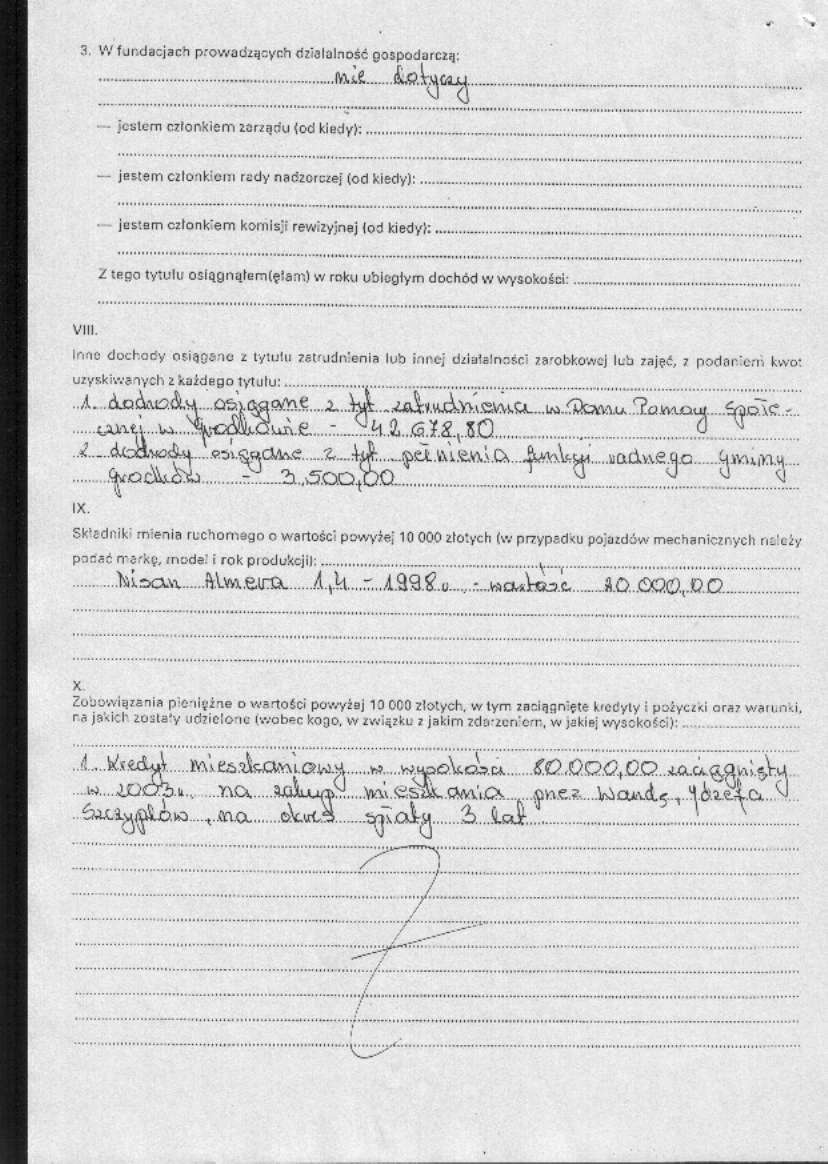 3. W fundacjach prowadzących działalność gospodarczą:
nie dotyczy
— jestem członkiem zarządu (od kiedy):
— jestem członkiem rady nadzorczej (od kiedy):
— jestem członkiem komisji rewizyjnej (od kiedy):
Z tego tytułu osiągnąłem(ęłam) w roku ubiegłym dochód w wysokości:
VIII.
Inne dochody osiągane z tytułu zatrudnienia lub innej działalności zarobkowej lub zajęć, z podaniem kwot
uzyskiwanych z każdego tytułu:
1. dochody osiągane z tyt. zatrudnienia w Domu Pomocy Społe-
cznej w Grodkowie - 42 678,80
2. dochody osiągane z tyt. pełnienia funkcji radnego Gminy
Grodków - 3.500,00
IX.
Składniki mienia ruchomego o wartości powyżej 10 000 złotych (w przypadku pojazdów mechanicznych należy
podać markę, model i rok produkcji):
Nisan Almera 1,4 - 1998r. - wartość 20.000,00
X.
Zobowiązania pieniężne o wartości powyżej 10 000 złotych, w tym zaciągnięte kredyty i pożyczki oraz warunki,
na jakich zostały udzielone (wobec kogo, w związku z jakim zdarzeniem, w jakiej wysokości):
1. Kredyt mieszkaniowy w wysokości 80.000,00 zaciągnięty
w 2003r. na zakup mieszkania przez Wandę, Józefa
Szczypłów, na okres spłaty 3 lat